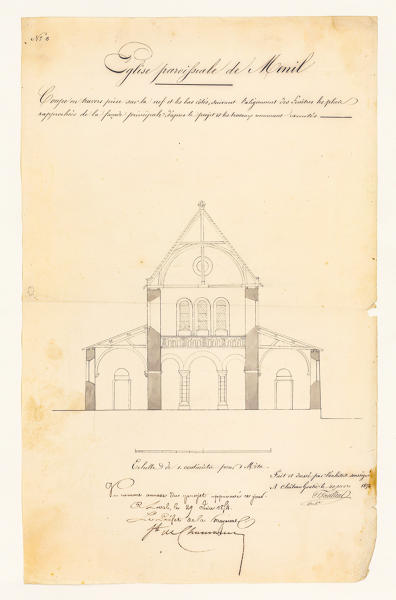 N° 8
Eglise paroissiale de Ménil
Coupe en travers prise sur la nef et les bas côtés, suivant l'alignement des fenêtres les plus
rapprochées de la façade principale, d'après le projet et les travaux
Echelle de 1 centimètre pour 1 Mètre
Fait et dressé par l'architecte soussigné
A Château Gontier le
Vu comme annexe du projet approuvé ce jour
A Laval, le 29 1874
Le Préfet de la Mayenne